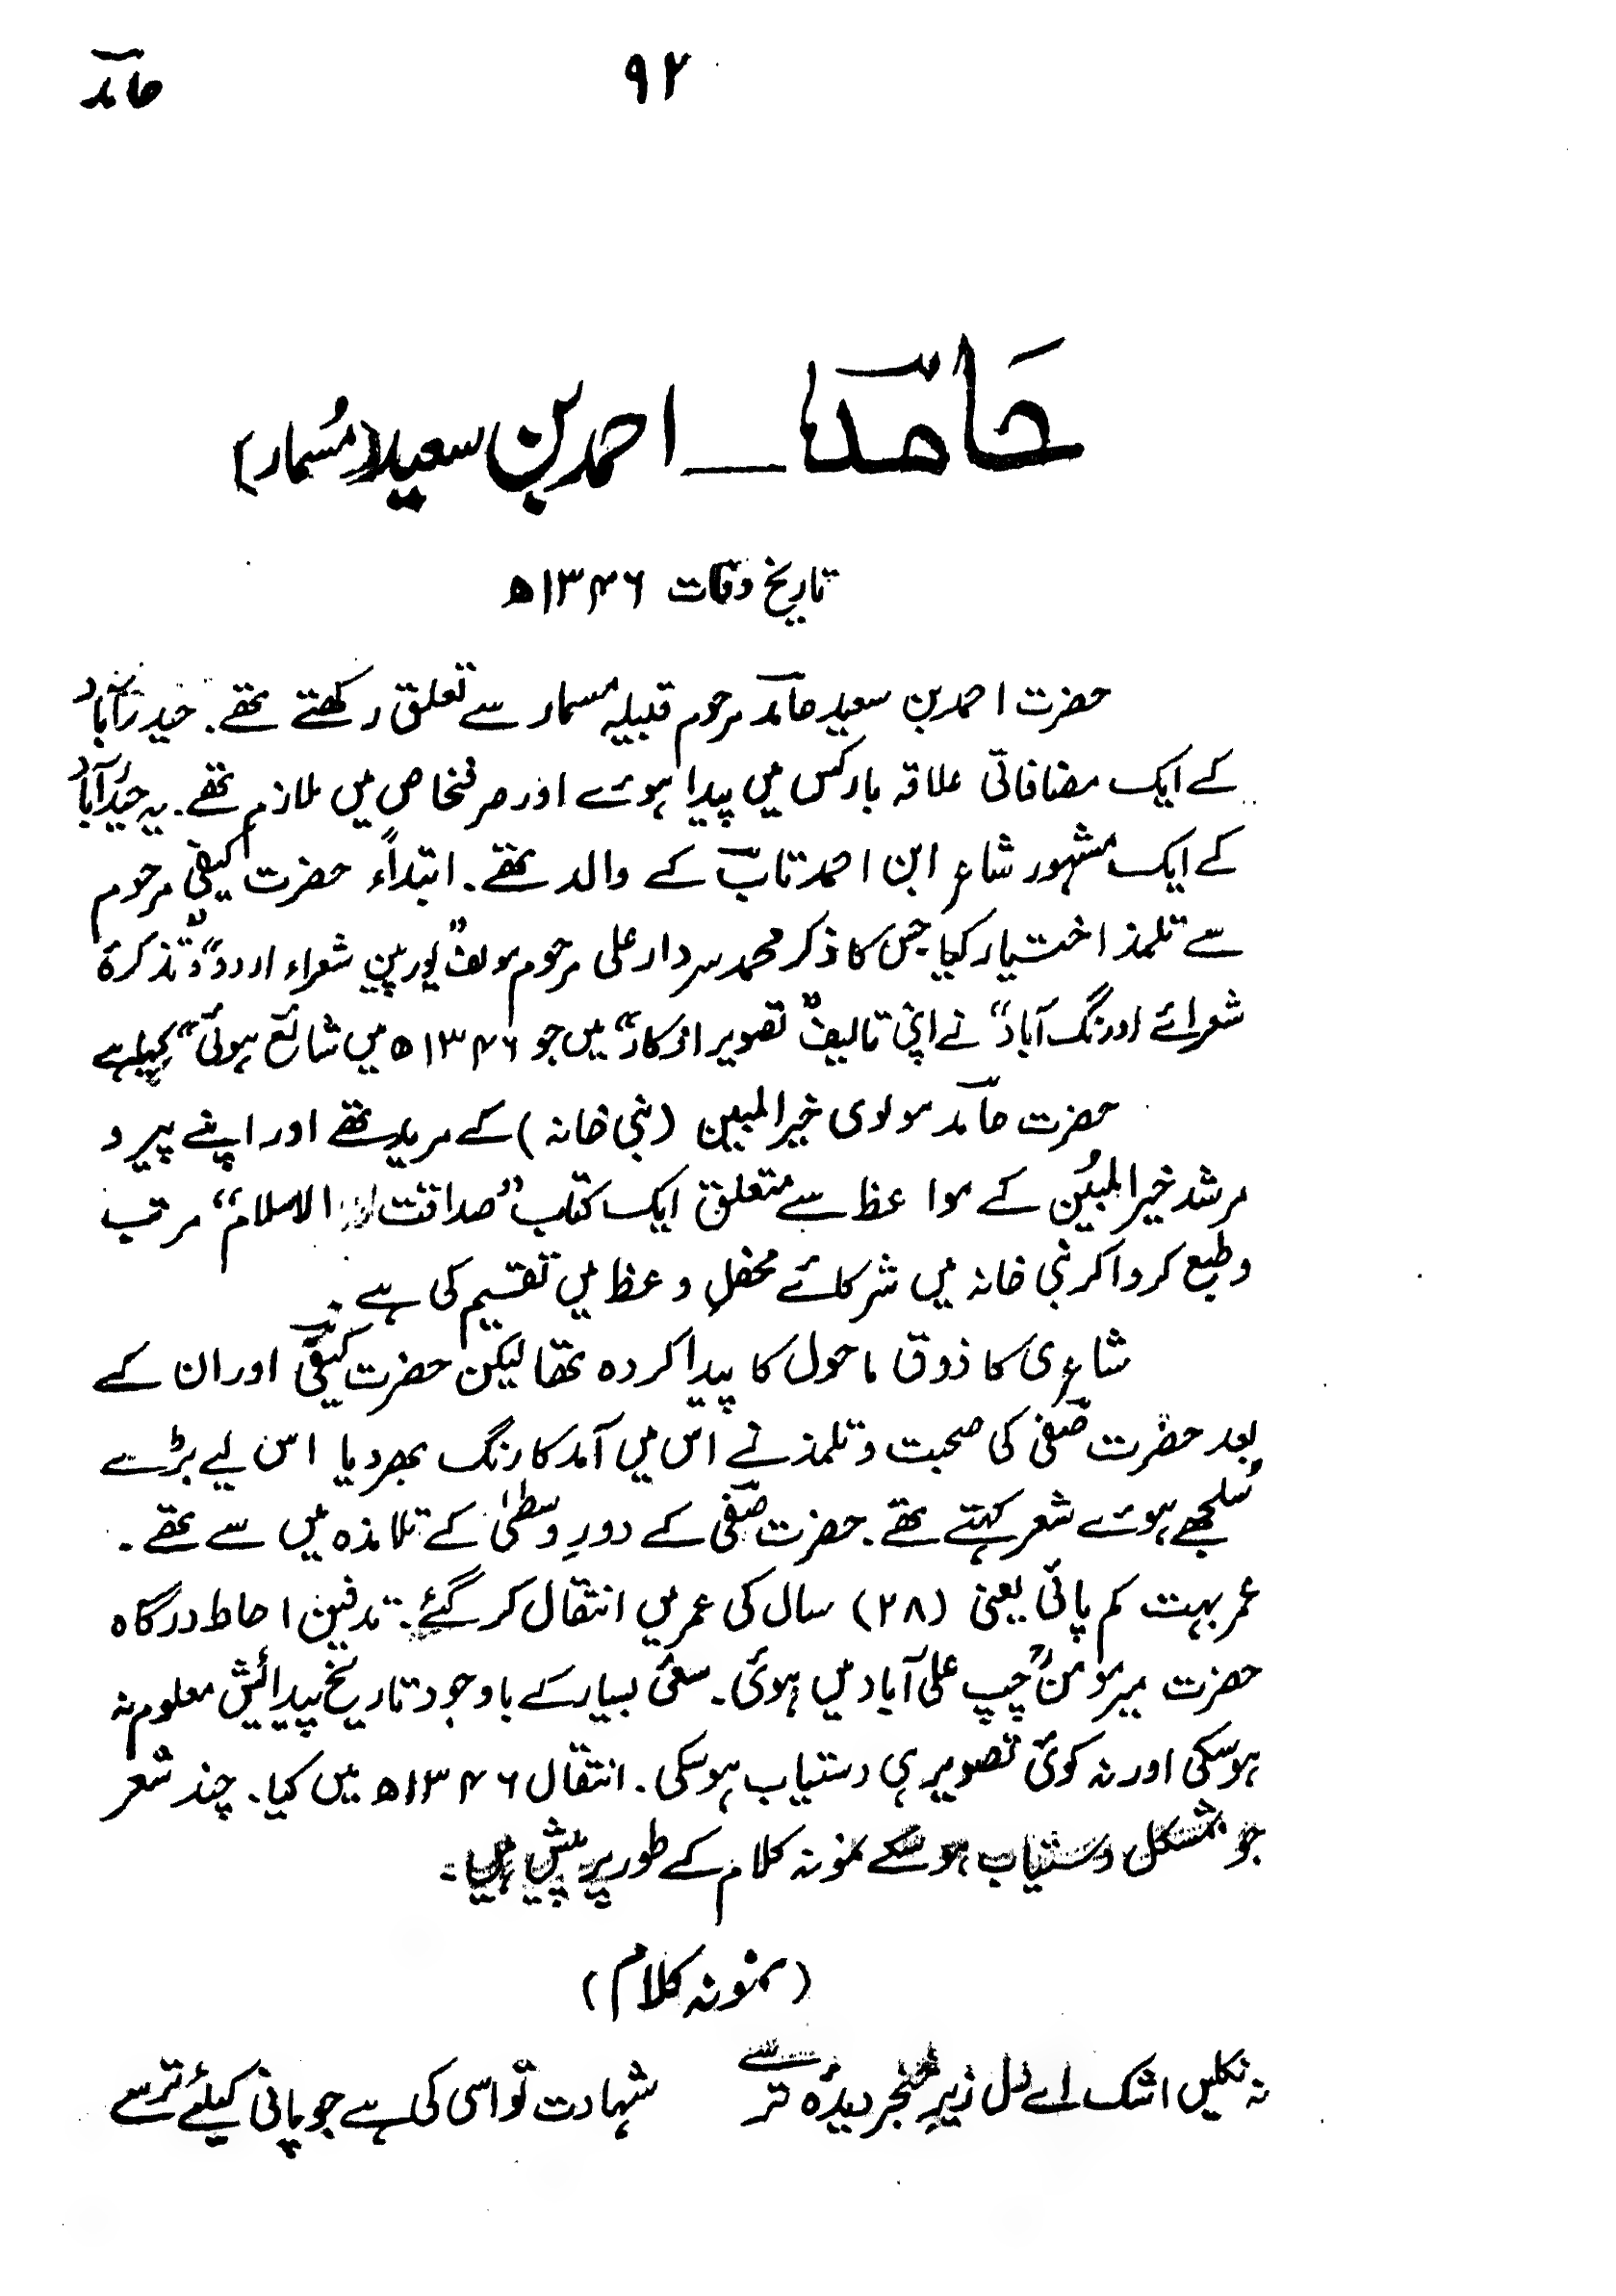 ۹۲
حامد
حامد — احمد بن سعید (مُسمار)
تاریخ وفات ۱۳۴۶ھ
حضرت احمد بن سعید حامد مرحوم قبیلہ مسمار سے تعلق رکھتے تھے۔ حیدرآباد
کے ایک مضافاتی علاقہ بارکس میں پیدا ہوئے اور صرفخاص میں ملازم تھے۔ یہ حیدرآباد
کے ایک مشہور شاعر ابن احمد تاب کے والد تھے۔ ابتداً حضرت کیفی مرحوم
سے تلمذ اختیار کیا جس کا ذکر محمد سردار علی مرحوم مولف "یورپین شعراء اردو" و "تذکرۂ
شعرائے اورنگ آباد" نے اپنی تالیف "تصویر افکار" میں جو ۱۳۴۶ھ میں شائع ہوئی" کیا ہے
حضرت حامد مولوی خیر المبین (نبی خانہ) کے مرید تھے اور اپنے پیر و
مرشد خیر المبین کے مواعظ سے متعلق ایک کتاب "صداقت الاسلام" مرتب
و طبع کروا کر نبی خانہ میں شرکائے محفلِ وعظ میں تقسیم کی ہے۔
شاعری کا ذوق ماحول کا پیدا کردہ تھا لیکن حضرت کیفی اور ان کے
بعد حضرت صفی کی صحبت و تلمذ نے اس میں آمد کا رنگ بھر دیا اس لیے بڑے
سُلجھے ہوئے شعر کہتے تھے۔ حضرت صفی کے دورِ وسطیٰ کے تلامذہ میں سے تھے۔
عمر بہت کم پائی یعنی (۲۸) سال کی عمر میں انتقال کر گئے۔ تدفین احاط درگاہ
حضرت میر مومنؒ چپ علی آباد میں ہوئی۔ سعئ بسیار کے باوجود تاریخ پیدائش معلوم نہ
ہوسکی اور نہ کوئی تصویر ہی دستیاب ہوسکی۔ انتقال ۱۳۴۶ھ میں کیا۔ چند شعر
جو بمشکل دستیاب ہو سکے نمونہ کلام کے طور پر پیش ہیں۔
(نمونہ کلام)
نہ نکلیں اشک اے دل زیرِ خنجر دیدۂ تر سے شہادت تو اسی کی ہے جو پانی کیلئے ترسے